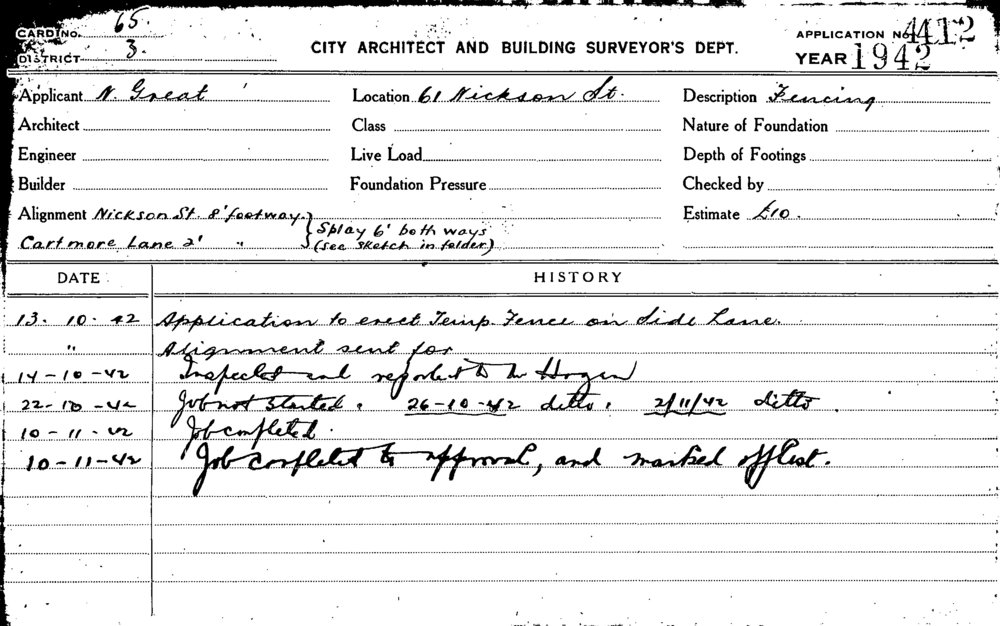 CARD No. 65.
DISTRICT 3.
CITY ARCHITECT AND BUILDING SURVEYOR'S DEPT.
APPLICATION No. 412
YEAR 1942
Applicant N. Great Location 61 Nickson St. Description Fencing
Architect Class Nature of Foundation
Engineer Live Load Depth of Footings
Builder Foundation Pressure Checked by
Alignment Nickson St. 8' footway. } Splay 6' both ways Estimate £10.
Cartmore Lane 2' " (see sketch in folder)
DATE HISTORY
13. 10. 42 Application to erect Temp. Fence on Side Lane.
" Alignment sent for
14-10-42 Inspected and reported to Mr Hogan
22-10-42 Job not started. 26-10-42 ditto. 2/11/42 ditto.
10-11-42 Job completed.
10-11-42 Job completed to approval, and marked off list.